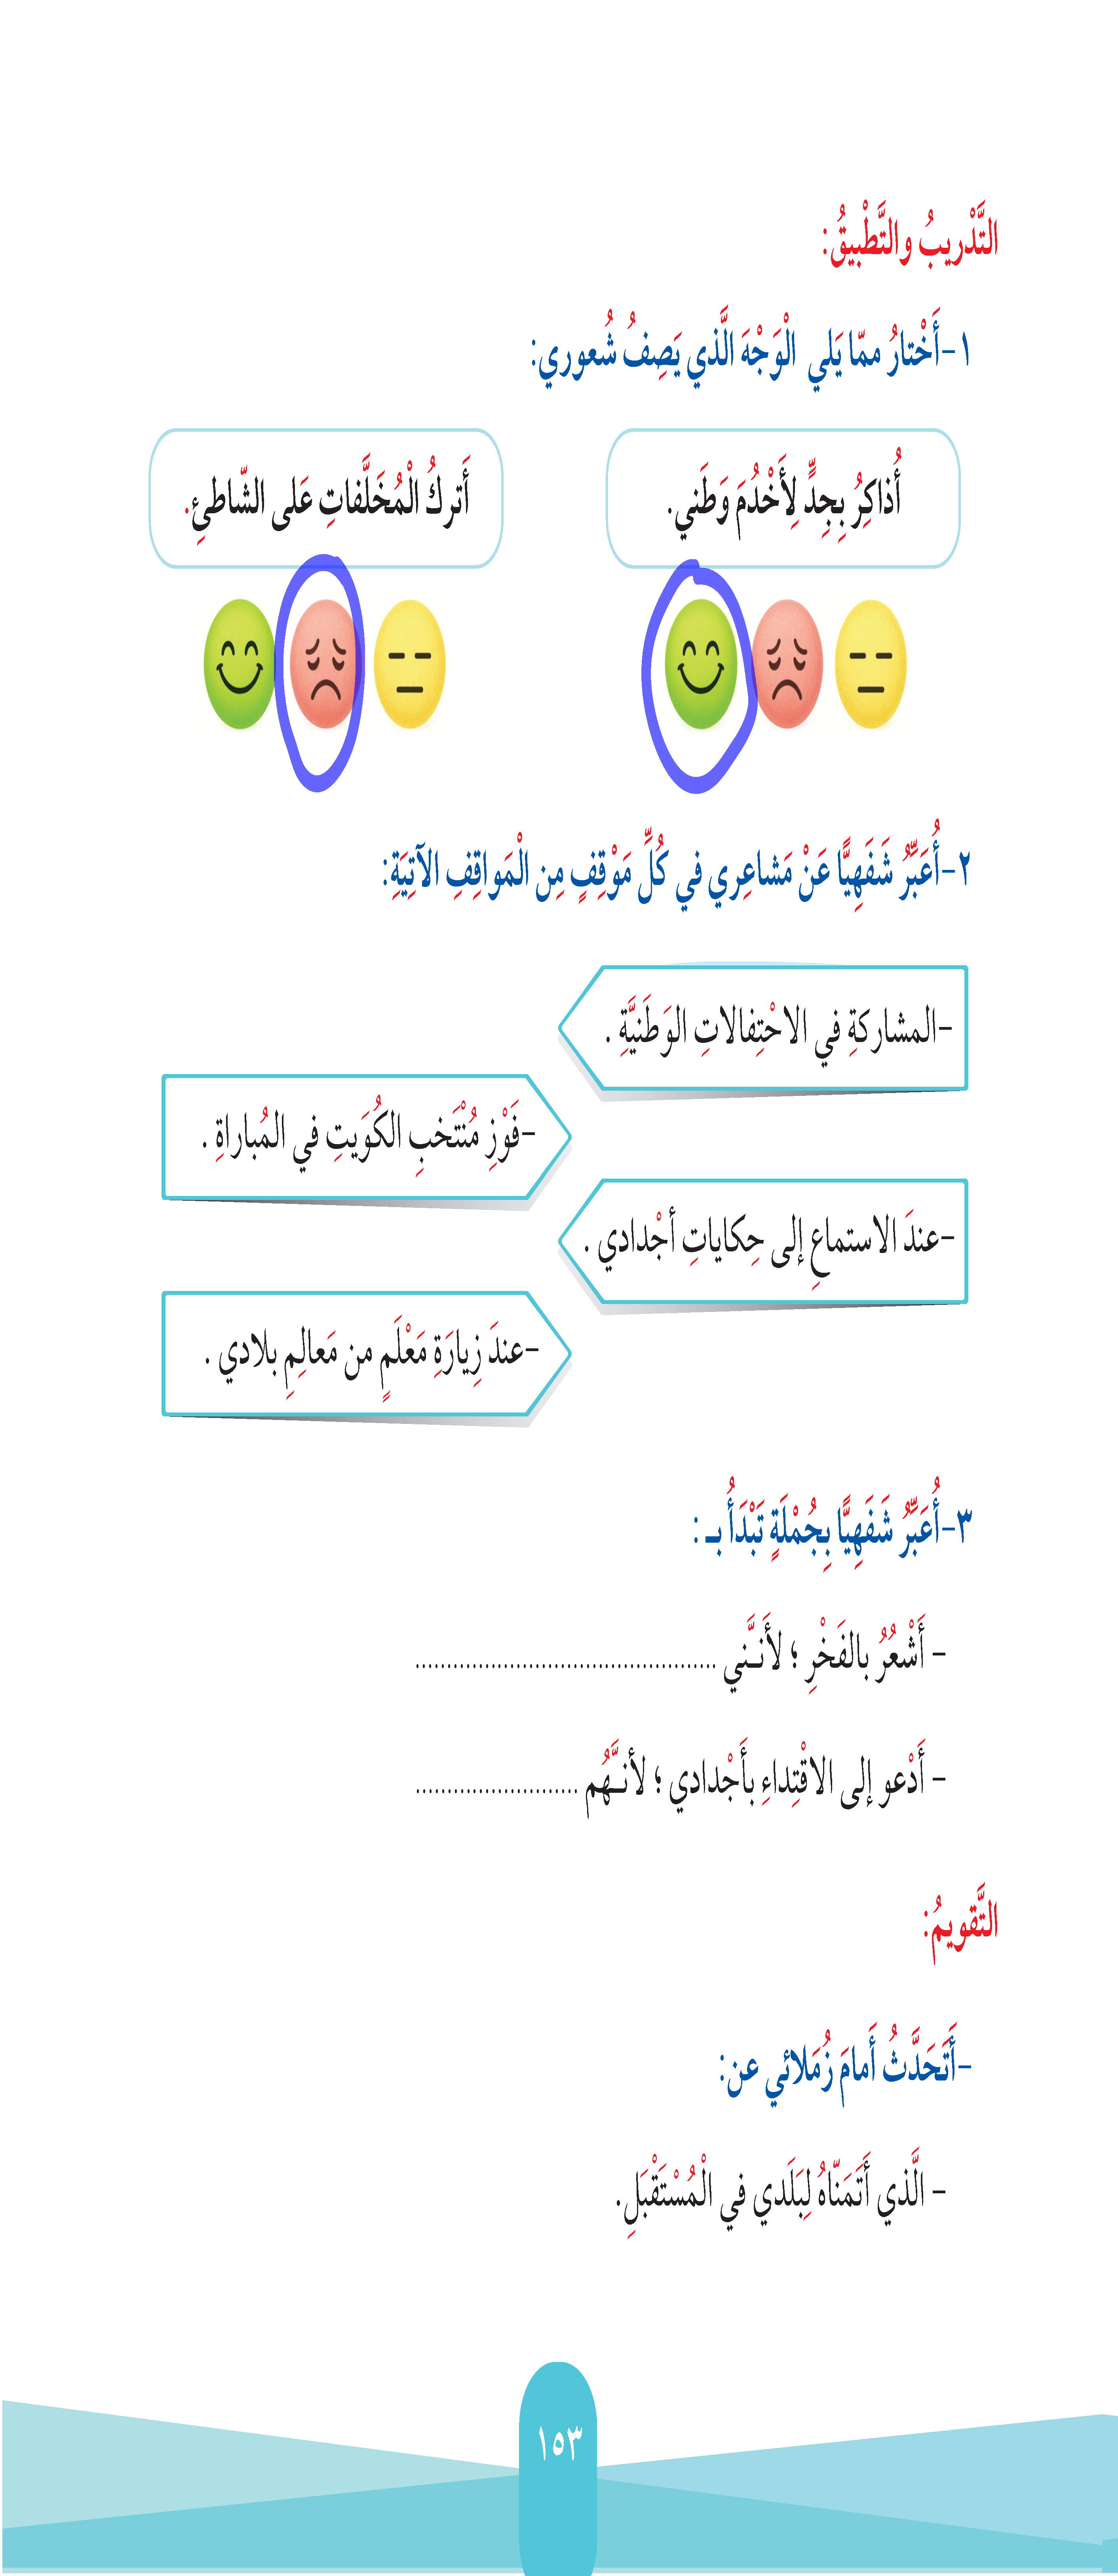 التَّدْريبُ والتَّطْبيقُ:
١-أَخْتارُ ممّا يَلي الْوَجْهَ الَّذي يَصِفُ شُعوري:
أُذاكِرُ بِجِدٍّ لِأَخْدُمَ وَطَني.
أَتركُ الْمُخَلَّفاتِ عَلى الشّاطئِ.
٢-أُعَبِّرُ شَفَهِيًّا عَنْ مَشاعِري في كُلِّ مَوْقِفٍ مِن الْمَواقِفِ الآتِيَةِ:
-المشاركةِ في الاحْتِفالاتِ الوَطَنيَّةِ .
-فَوْزِ مُنْتَخبِ الكُوَيتِ في المُباراةِ .
-عندَ الاستماعِ إلى حِكاياتِ أجْدادي .
-عندَ زِيارَةِ مَعْلَمٍ من مَعالِمِ بلادي .
٣-أُعَبِّرُ شَفَهِيًّا بِجُمْلَةٍ تَبْدَأُ بـ :
- أَشْعُرُ بالفَخْرِ ؛ لأَنـَّني ................................................
- أَدْعو إلى الاقْتِداءِ بأَجْدادي ؛ لأنـَّهُم ..........................
التَّقويمُ:
-أَتَحَدَّثُ أَمامَ زُمَلائي عن:
- الَّذي أَتَمَنّاهُ لِبَلَدي في الْمُسْتَقْبَلِ.
١٥٣